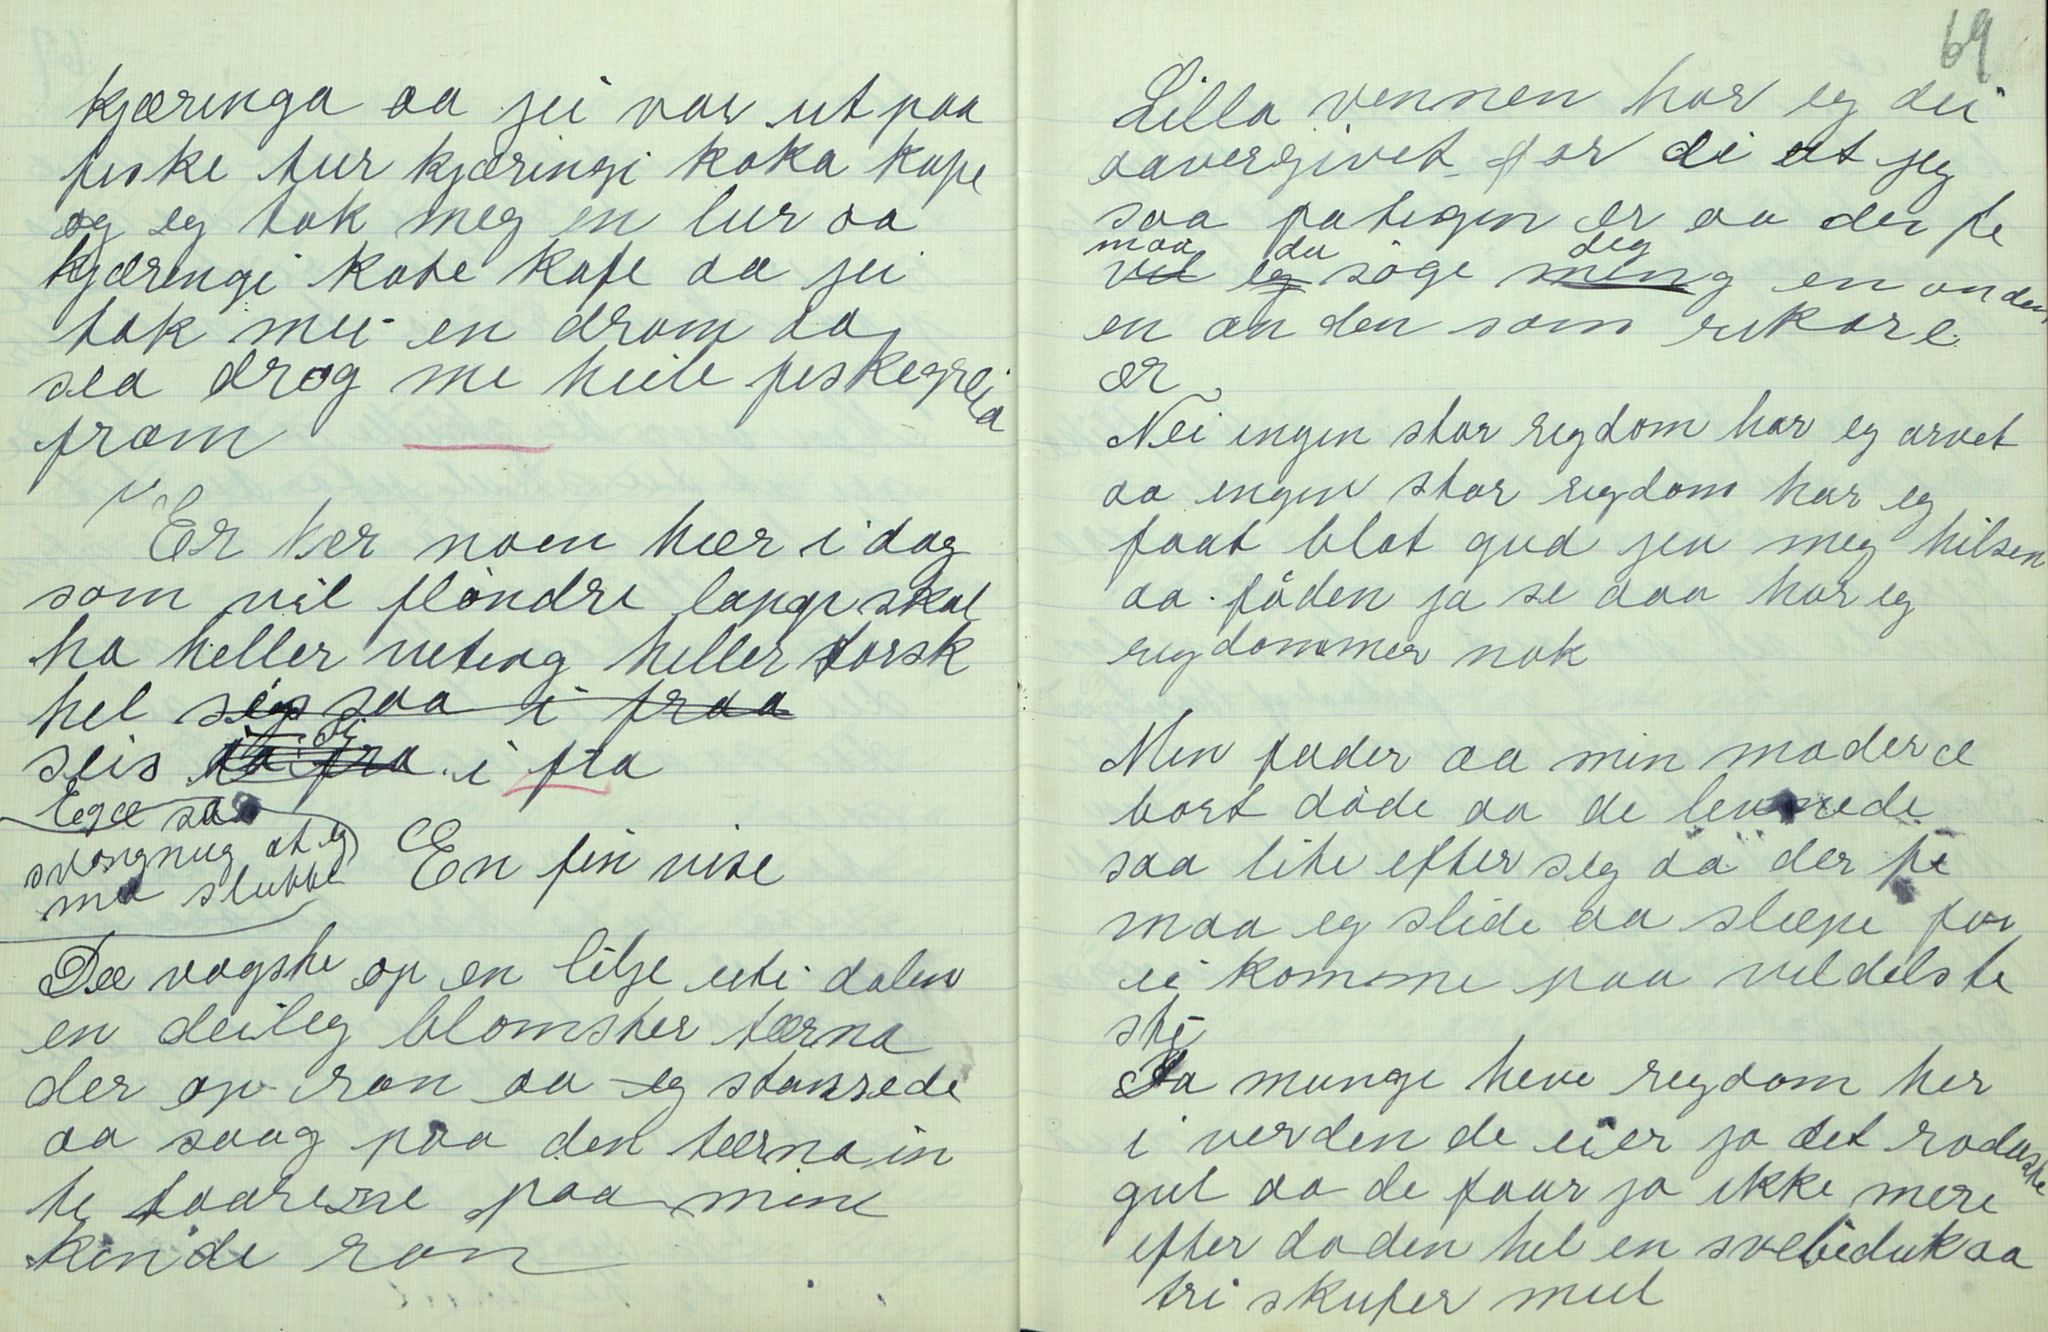 kjæringa aa jei var ut paa
fiske tur kjæringi koka kafe
og eg tok meg en lur aa
kjæringi kote kafe aa jei
tok mei en dram aa
sea drog me heile fiskegreia
fram
Er her noen hær i dag
som vil flöndre lange skal
ha heller veting heller torsk
hel seis saa i fraa
seis i fra
Eg æ saa
svangnug at eg
ma slubbe
En fin vise
Dæ vogste op en lilje uti dalen
en deileg blomster tærna
der op ran aa eg stansede
aa saag paa den tærna in
te taarerne paa mine
kinde ran
69
Lilla vennen har eg dei
aavergivet for di at jeg
saa fatigen er aa der fe
maa du deg
vil eg söge meng en anden
en anden som rikare
ær
Nei ingen stor regdom har eg arvet
aa ingen stor regdom har eg
faat blot gud jen meg hilsen
aa föden ja se daa har eg
regdommer nok
Min fader aa min moder æ
bort döde aa de levnede
saa lite efter seg aa der fe
maa eg slide aa slæpe for
ei komme paa vildelste
sti
Ja mange heve regdom her
i verden de eier jo det rodeste
gul aa de faar jo ikke mere
efter doden hel en svebeduk aa
tri skufer mul